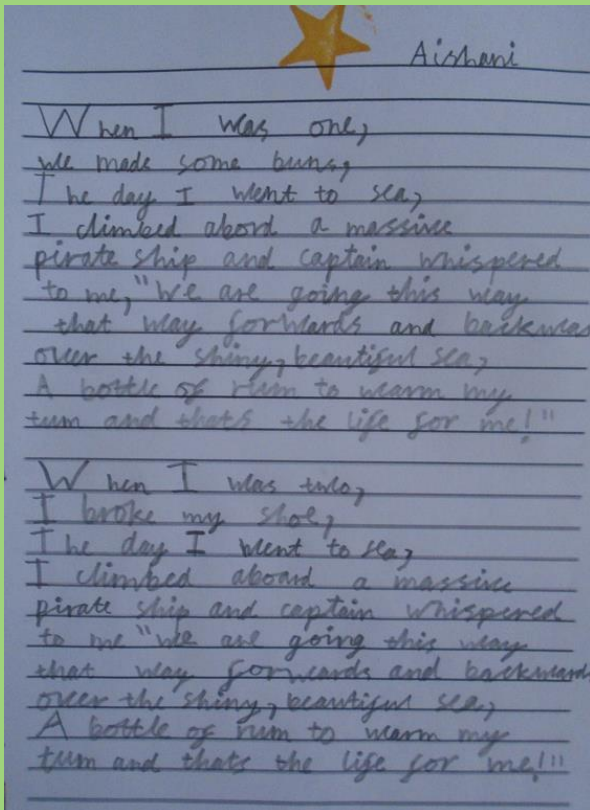 Aishani
When I was one,
we made some buns,
The day I went to sea,
I climbed abord a massive
pirate ship and captain whispered
to me, "We are going this way
that way forwards and backwas
over the shiny, beautiful sea,
A bottle of rum to warm my
tum and thats the life for me!"
When I was two,
I broke my shoe,
The day I went to sea,
I climbed aboard a massive
pirate ship and captain whispered
to me "we are going this way
that way forwards and backwards
over the shiny, beautiful sea,
A bottle of rum to warm my
tum and thats the life for me!"